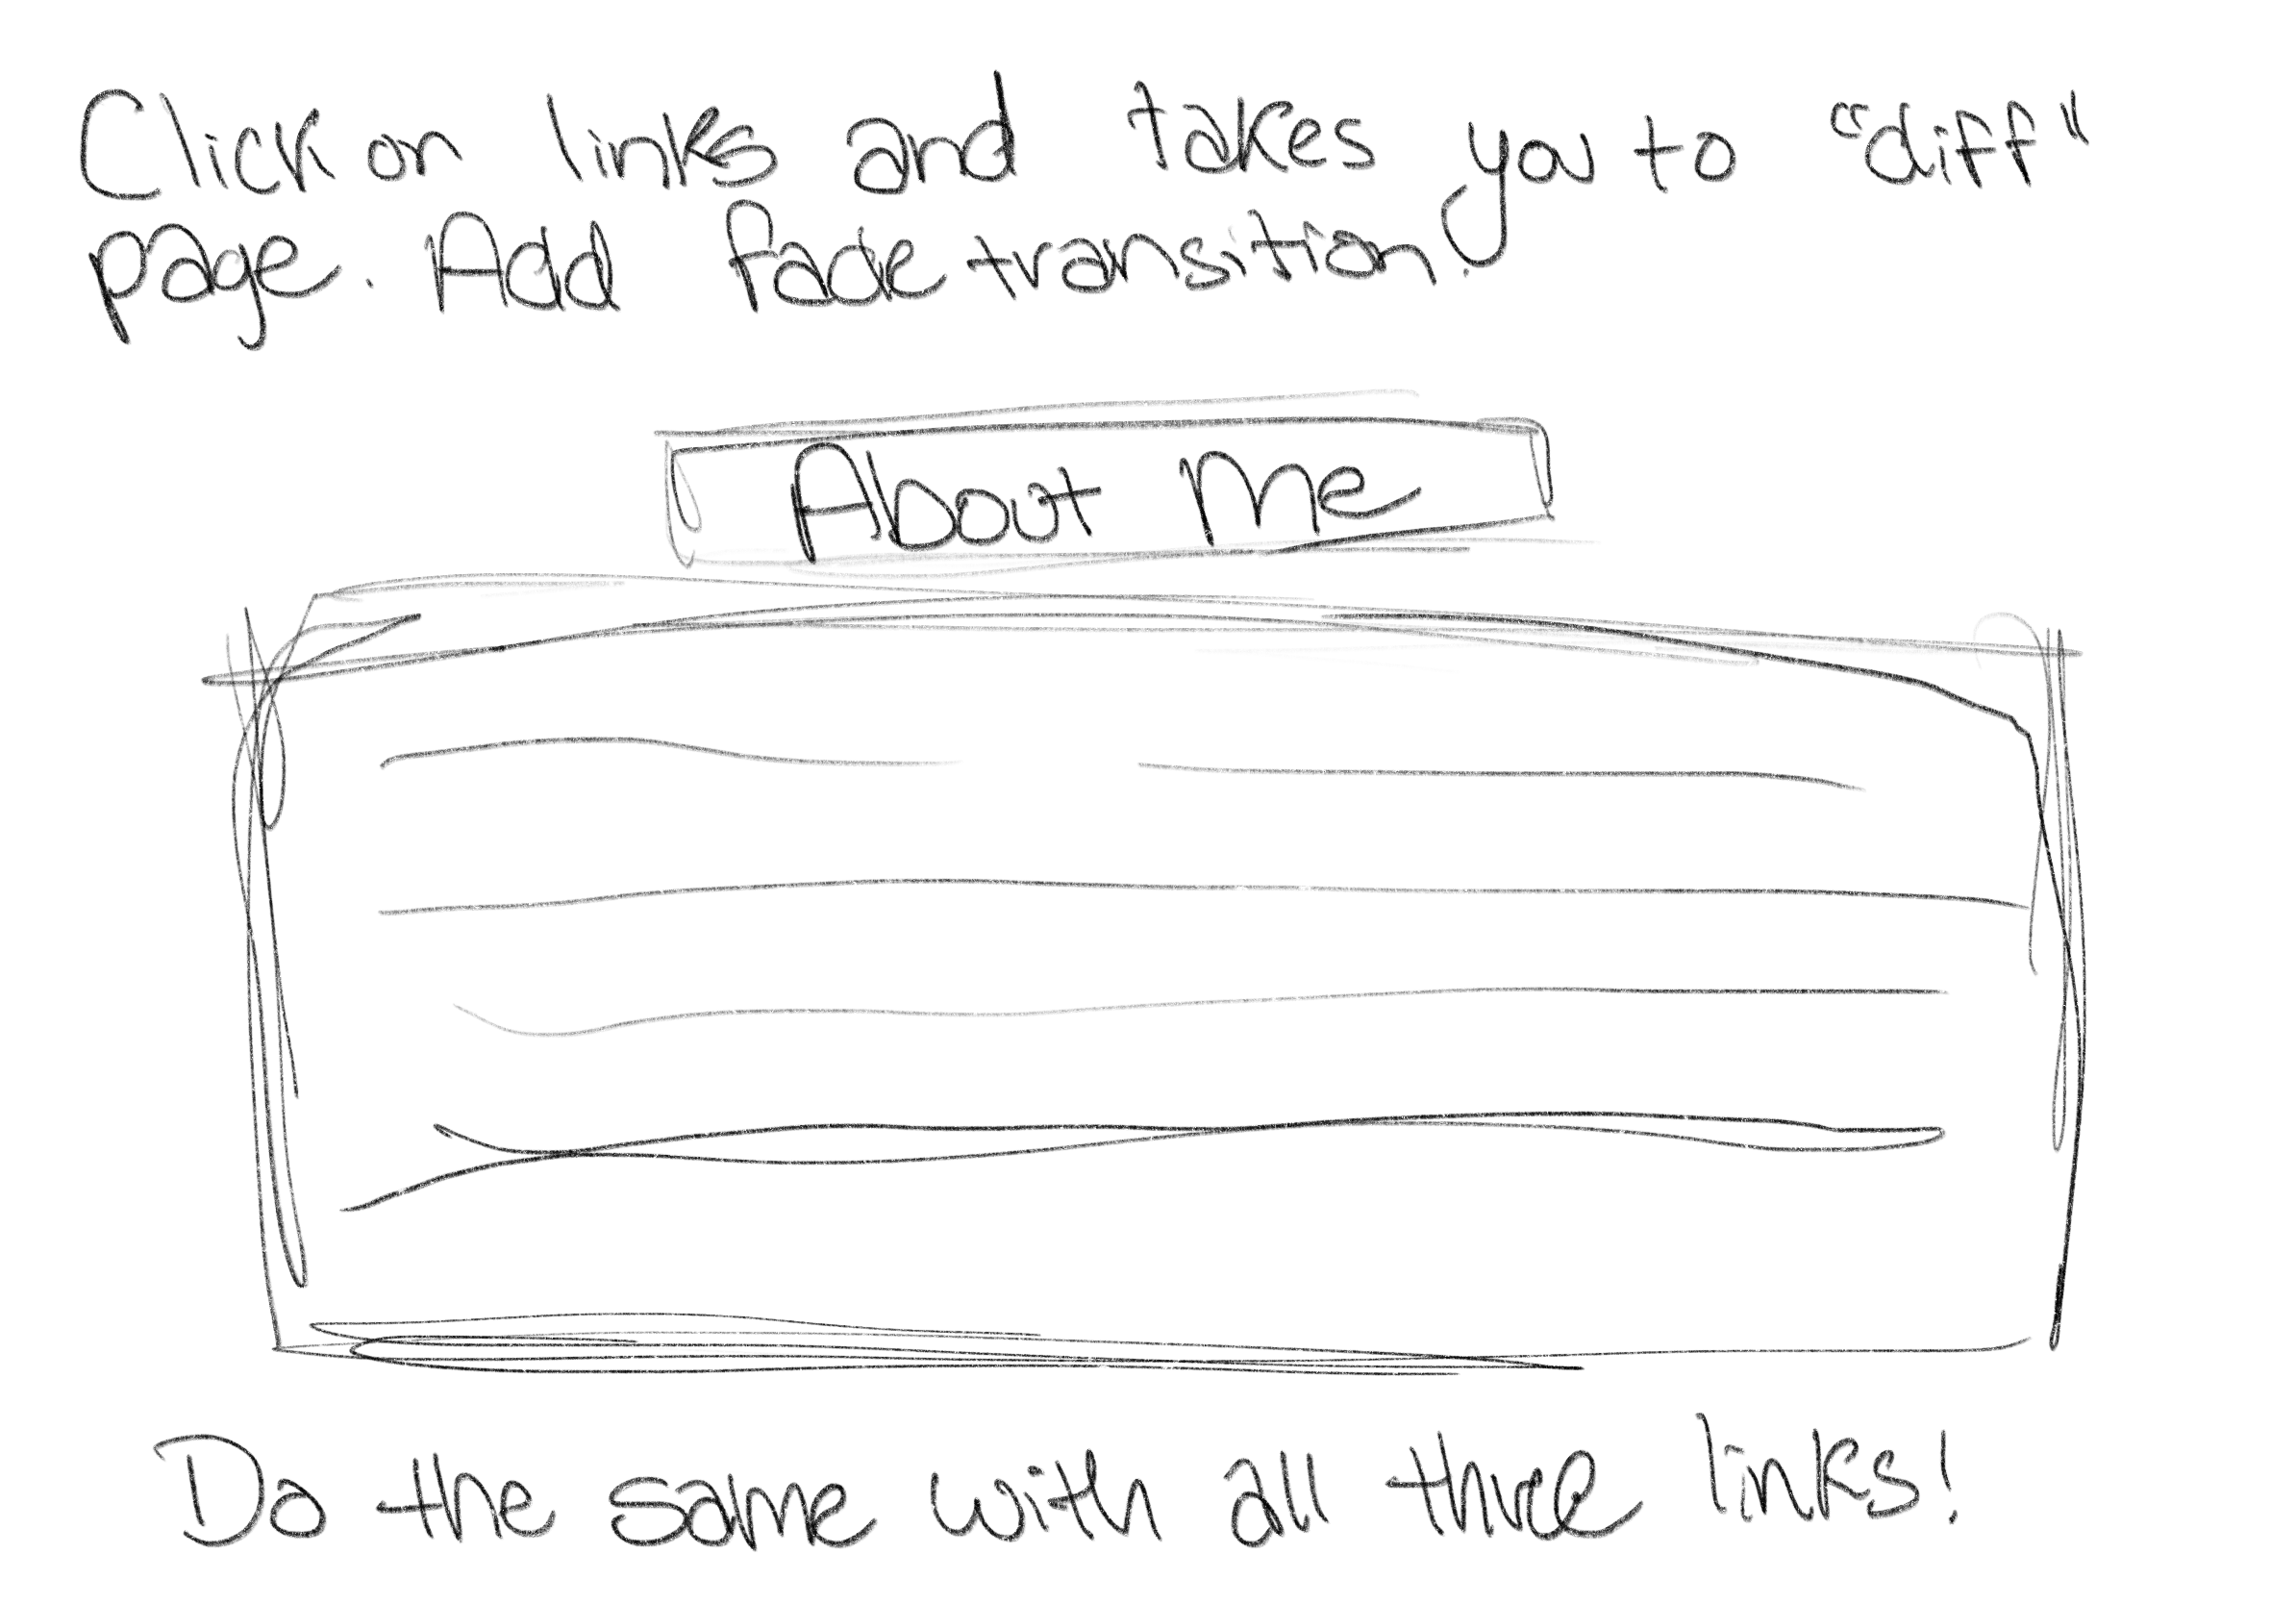 Click on links and takes you to "diff"
page. Add fade transition.
About Me
Do the same with all three links!